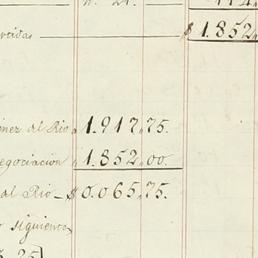 n. 21.
rtidas $1.852.
nez del Rio 1.917,75.
egociacion 1.852,00.
al Rio - $0.065,75.
o siguiente